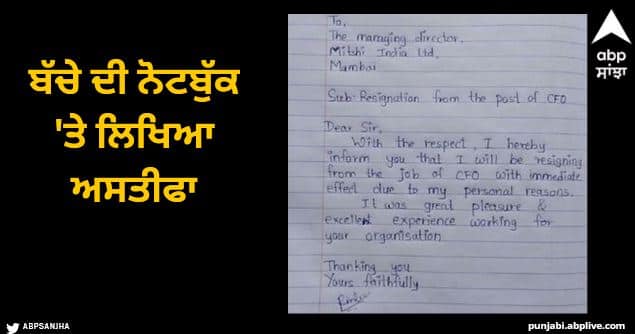 ਬੱਚੇ ਦੀ ਨੋਟਬੁੱਕ
'ਤੇ ਲਿਖਿਆ
ਅਸਤੀਫਾ
To,
The managing director.
Mitshi India Ltd,
Mumbai
Sub-Resignation from the post of CFO
Dear Sir,
With the respect, I hereby
inform you that I will be resigning
from the job of CFO with immediate
effect due to my personal reasons.
It was great pleasure &
excellent experience working for
your organisation
Thanking you
Yours faithfully
abp
ਸਾਂਝਾ
ABPSANJHA
punjabi.abplive.com